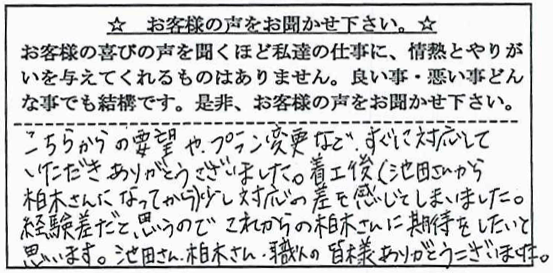 ☆ お客様の声をお聞かせ下さい。☆
お客様の喜びの声を聞くほど私達の仕事に、情熱とやりが
いを与えてくれるものはありません。良い事・悪い事どん
な事でも結構です。是非、お客様の声をお聞かせ下さい。
こちらからの要望や、プラン変更など、すぐに対応して
いただきありがとうございました。着工後(池田さんから
柏木さんになってから)少し対応の差を感じてしまいました。
経験差だと思うので これからの柏木さんに期待をしたいと
思います。池田さん・柏木さん・職人の皆様ありがとうございます。